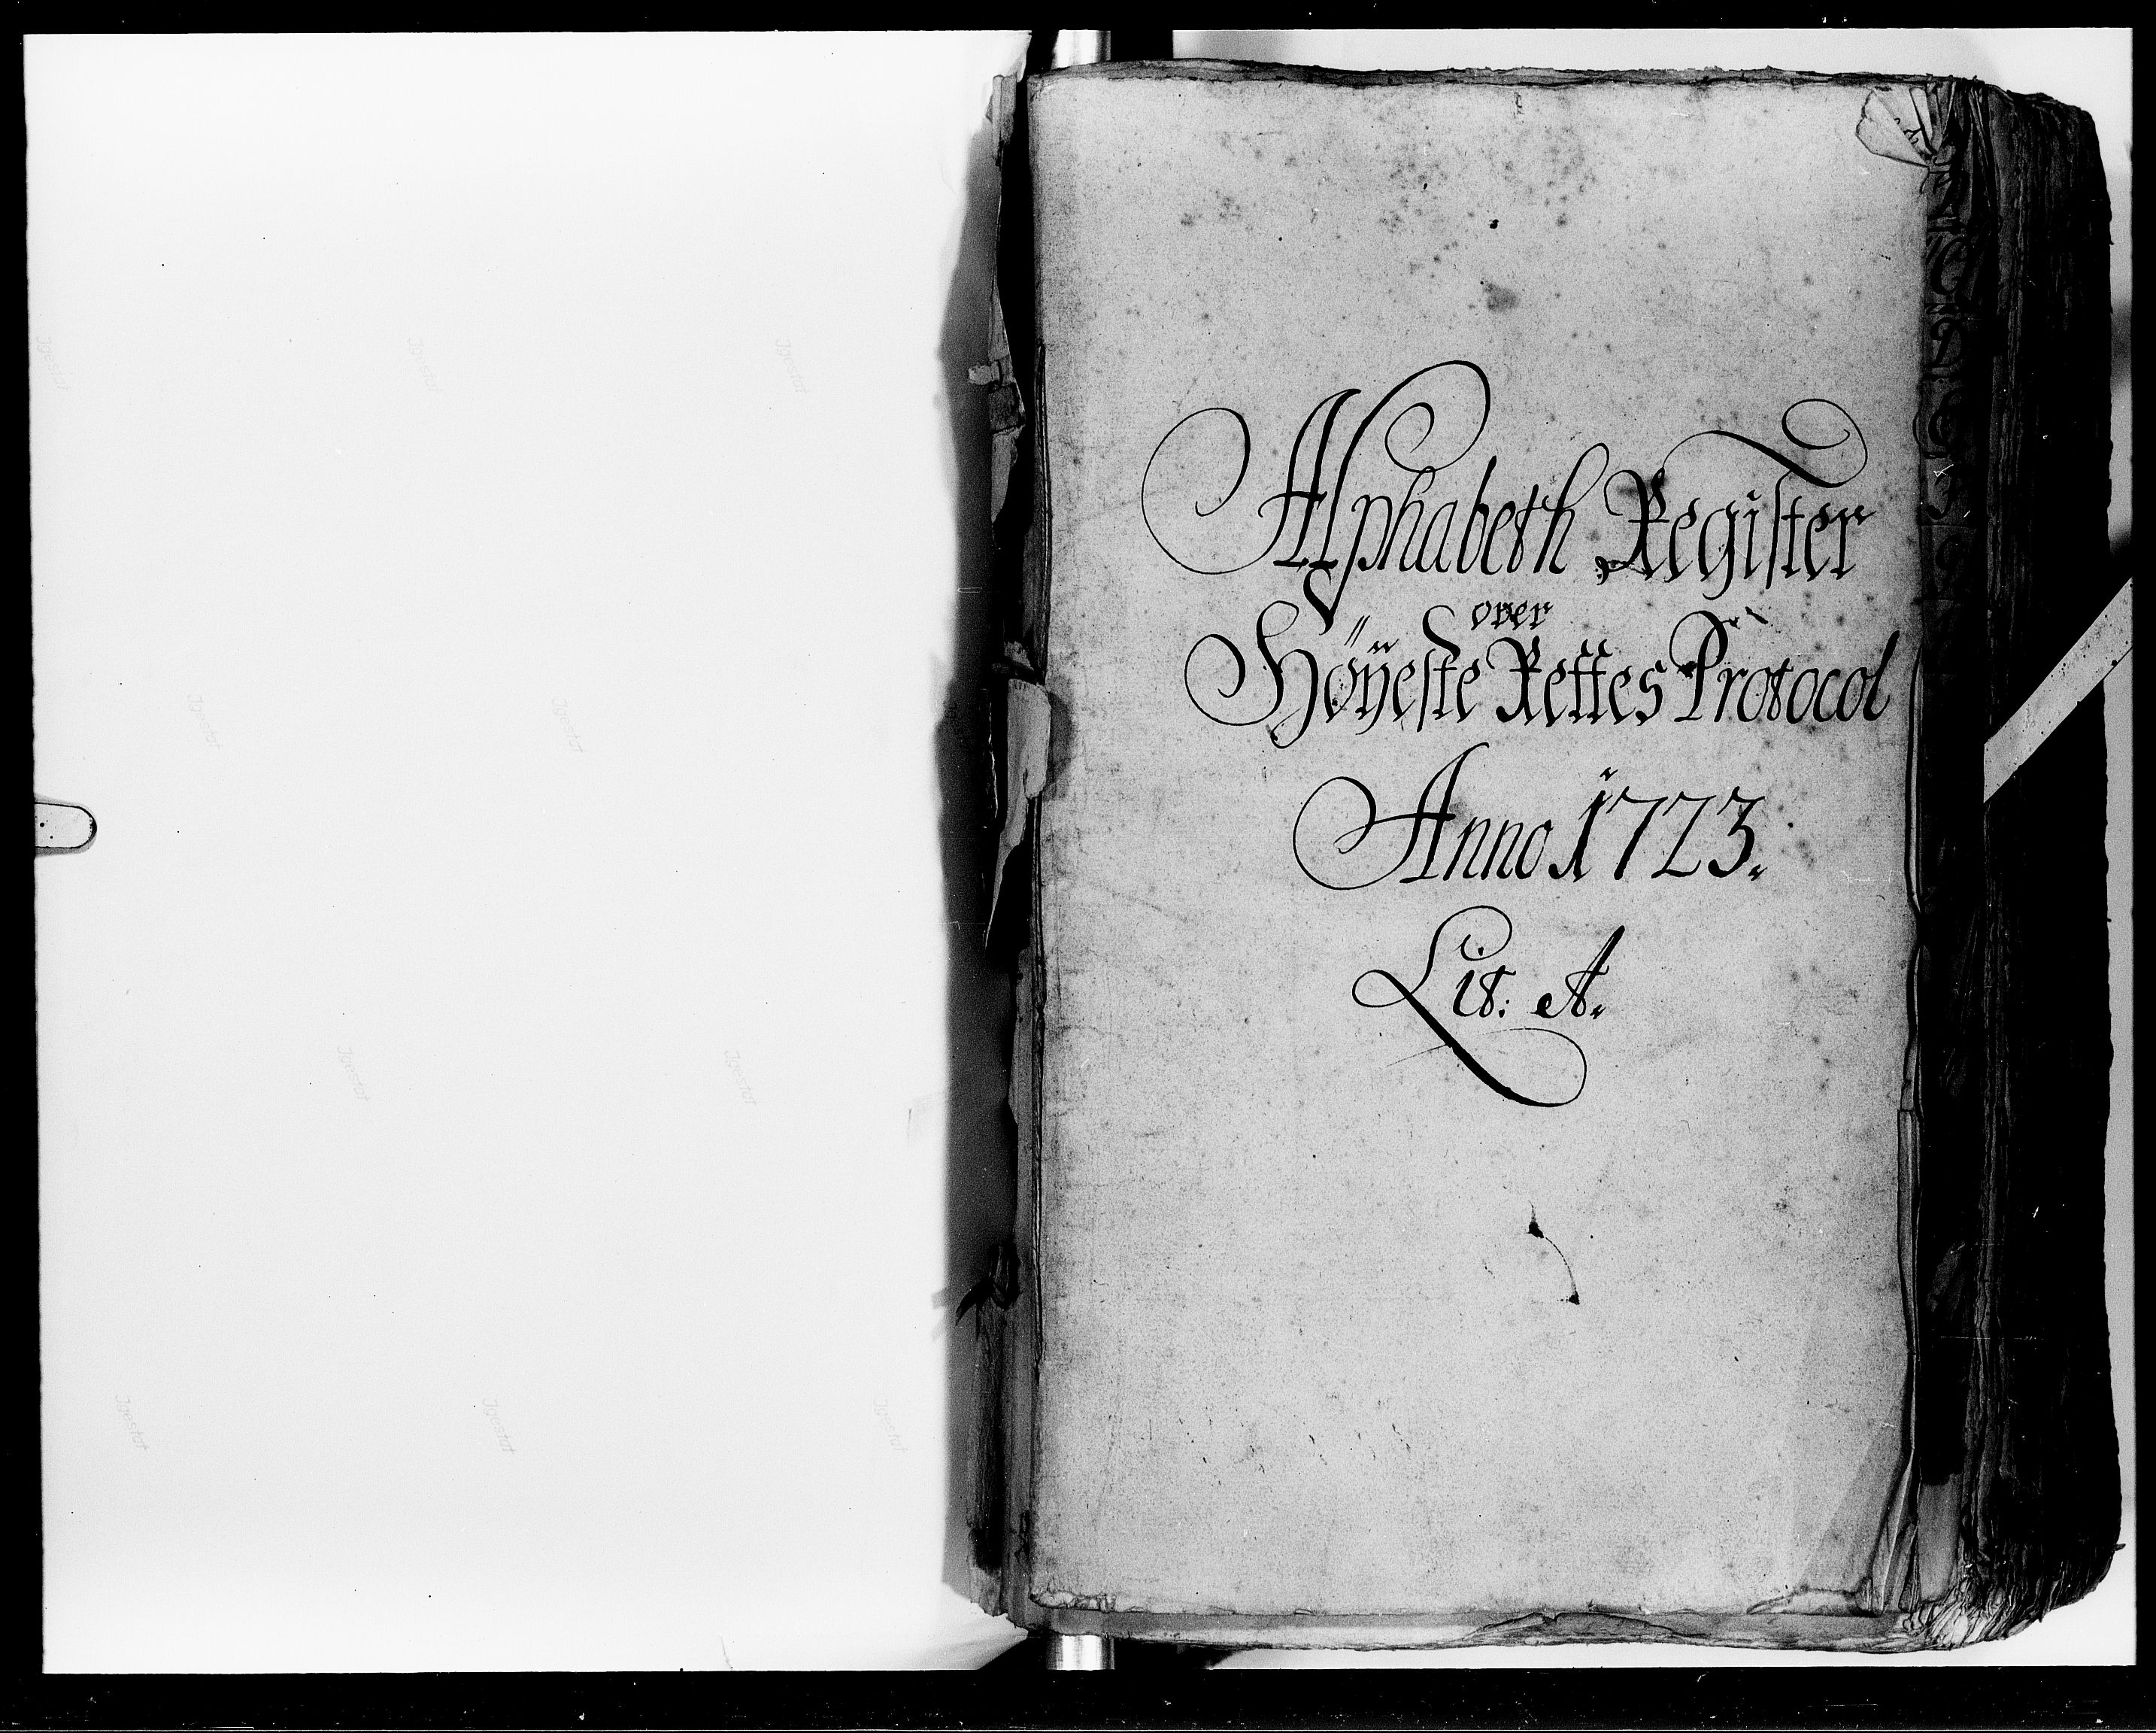 Alphabeth Register
over
Høÿeste Rettes Protocol
Anno 1723.
Lit: A.